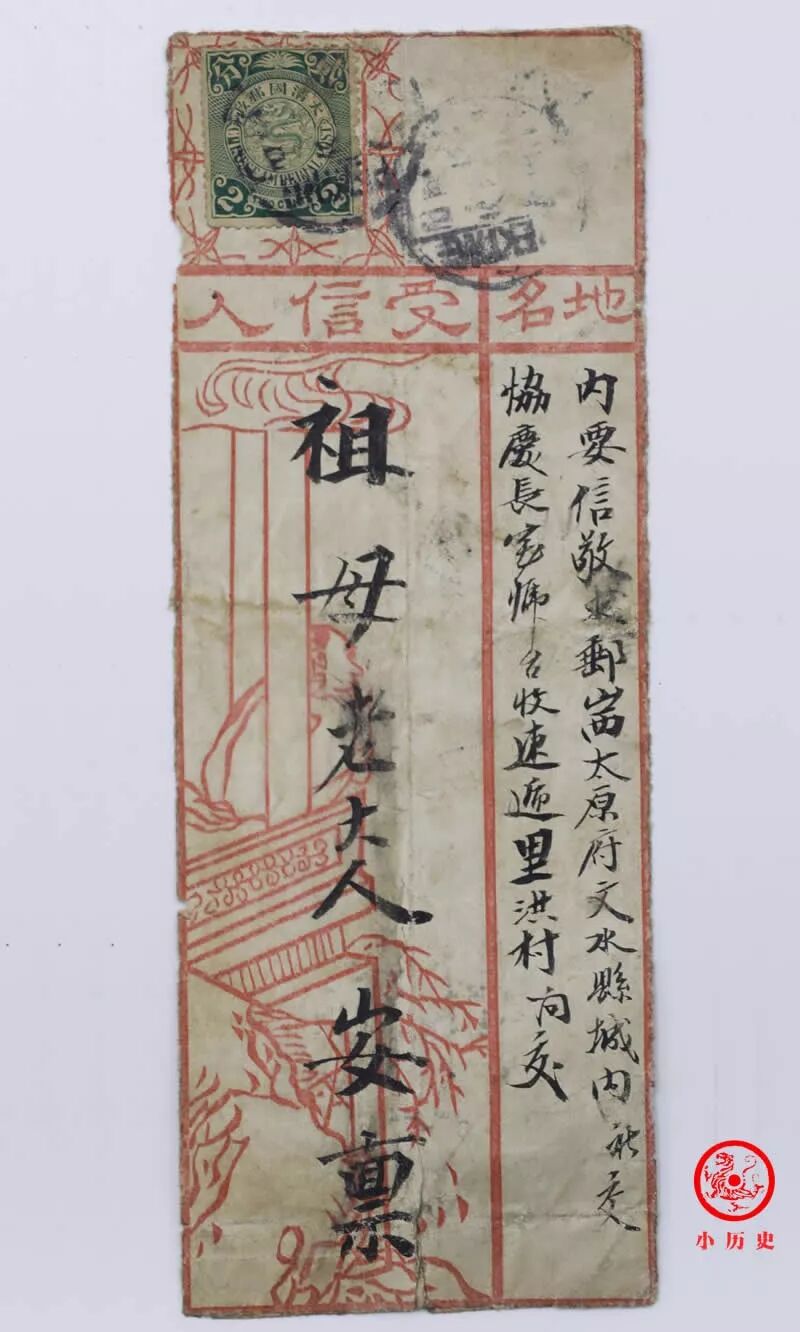 貳分
大清國郵政
2 2
地名
受信人
内要信敬求郵 太原府文水縣城内 交
恊慶長宝 台收速遞里洪村 交
祖母老大人安禀
小历史